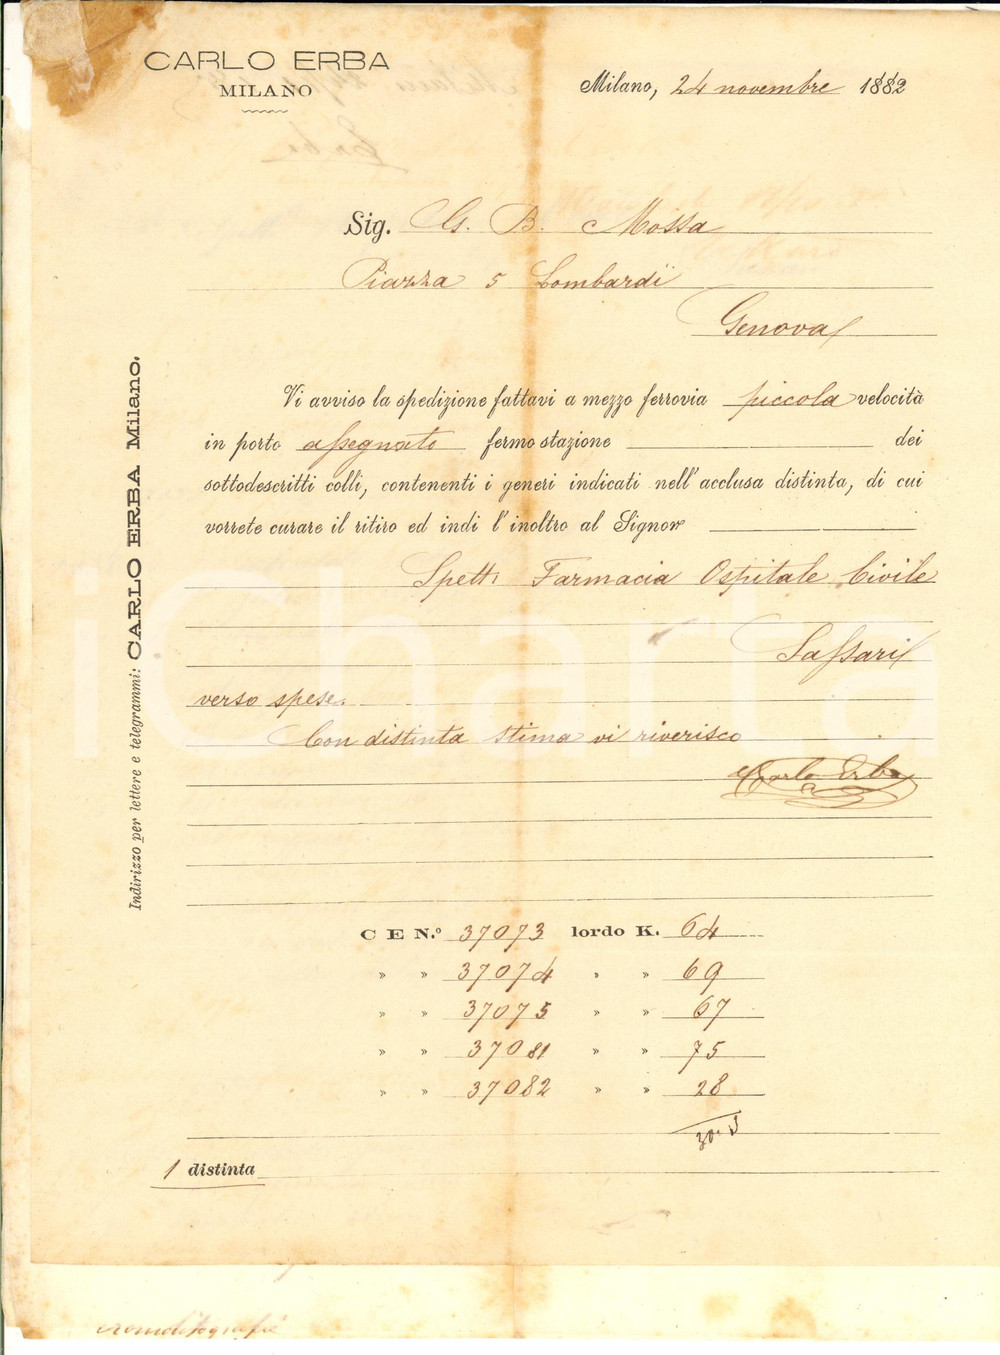 CARLO ERBA
MILANO
Milano, 24 novembre 1882
Sig. G. B. Mossa
Piazza 5 Lombardi
Genova
Vi avviso la spedizione fattavi a mezzo ferrovia piccola velocità
in porto assegnato fermo stazione dei
sottodescritti colli, contenenti i generi indicati nell'acclusa distinta, di cui
vorrete curare il ritiro ed indi l'inoltro al Signor
Spett. Farmacia Ospitale Civile
Sassari
verso spese.
Con distinta stima vi riverisco
Carlo Erba
Indirizzo per lettere e telegrammi: CARLO ERBA Milano.
C E N.º 37073 lordo K. 64
» » 37074 » » 69
» » 37075 » » 67
» » 37081 » » 75
» » 37082 » » 28
303
1 distinta
iCharta